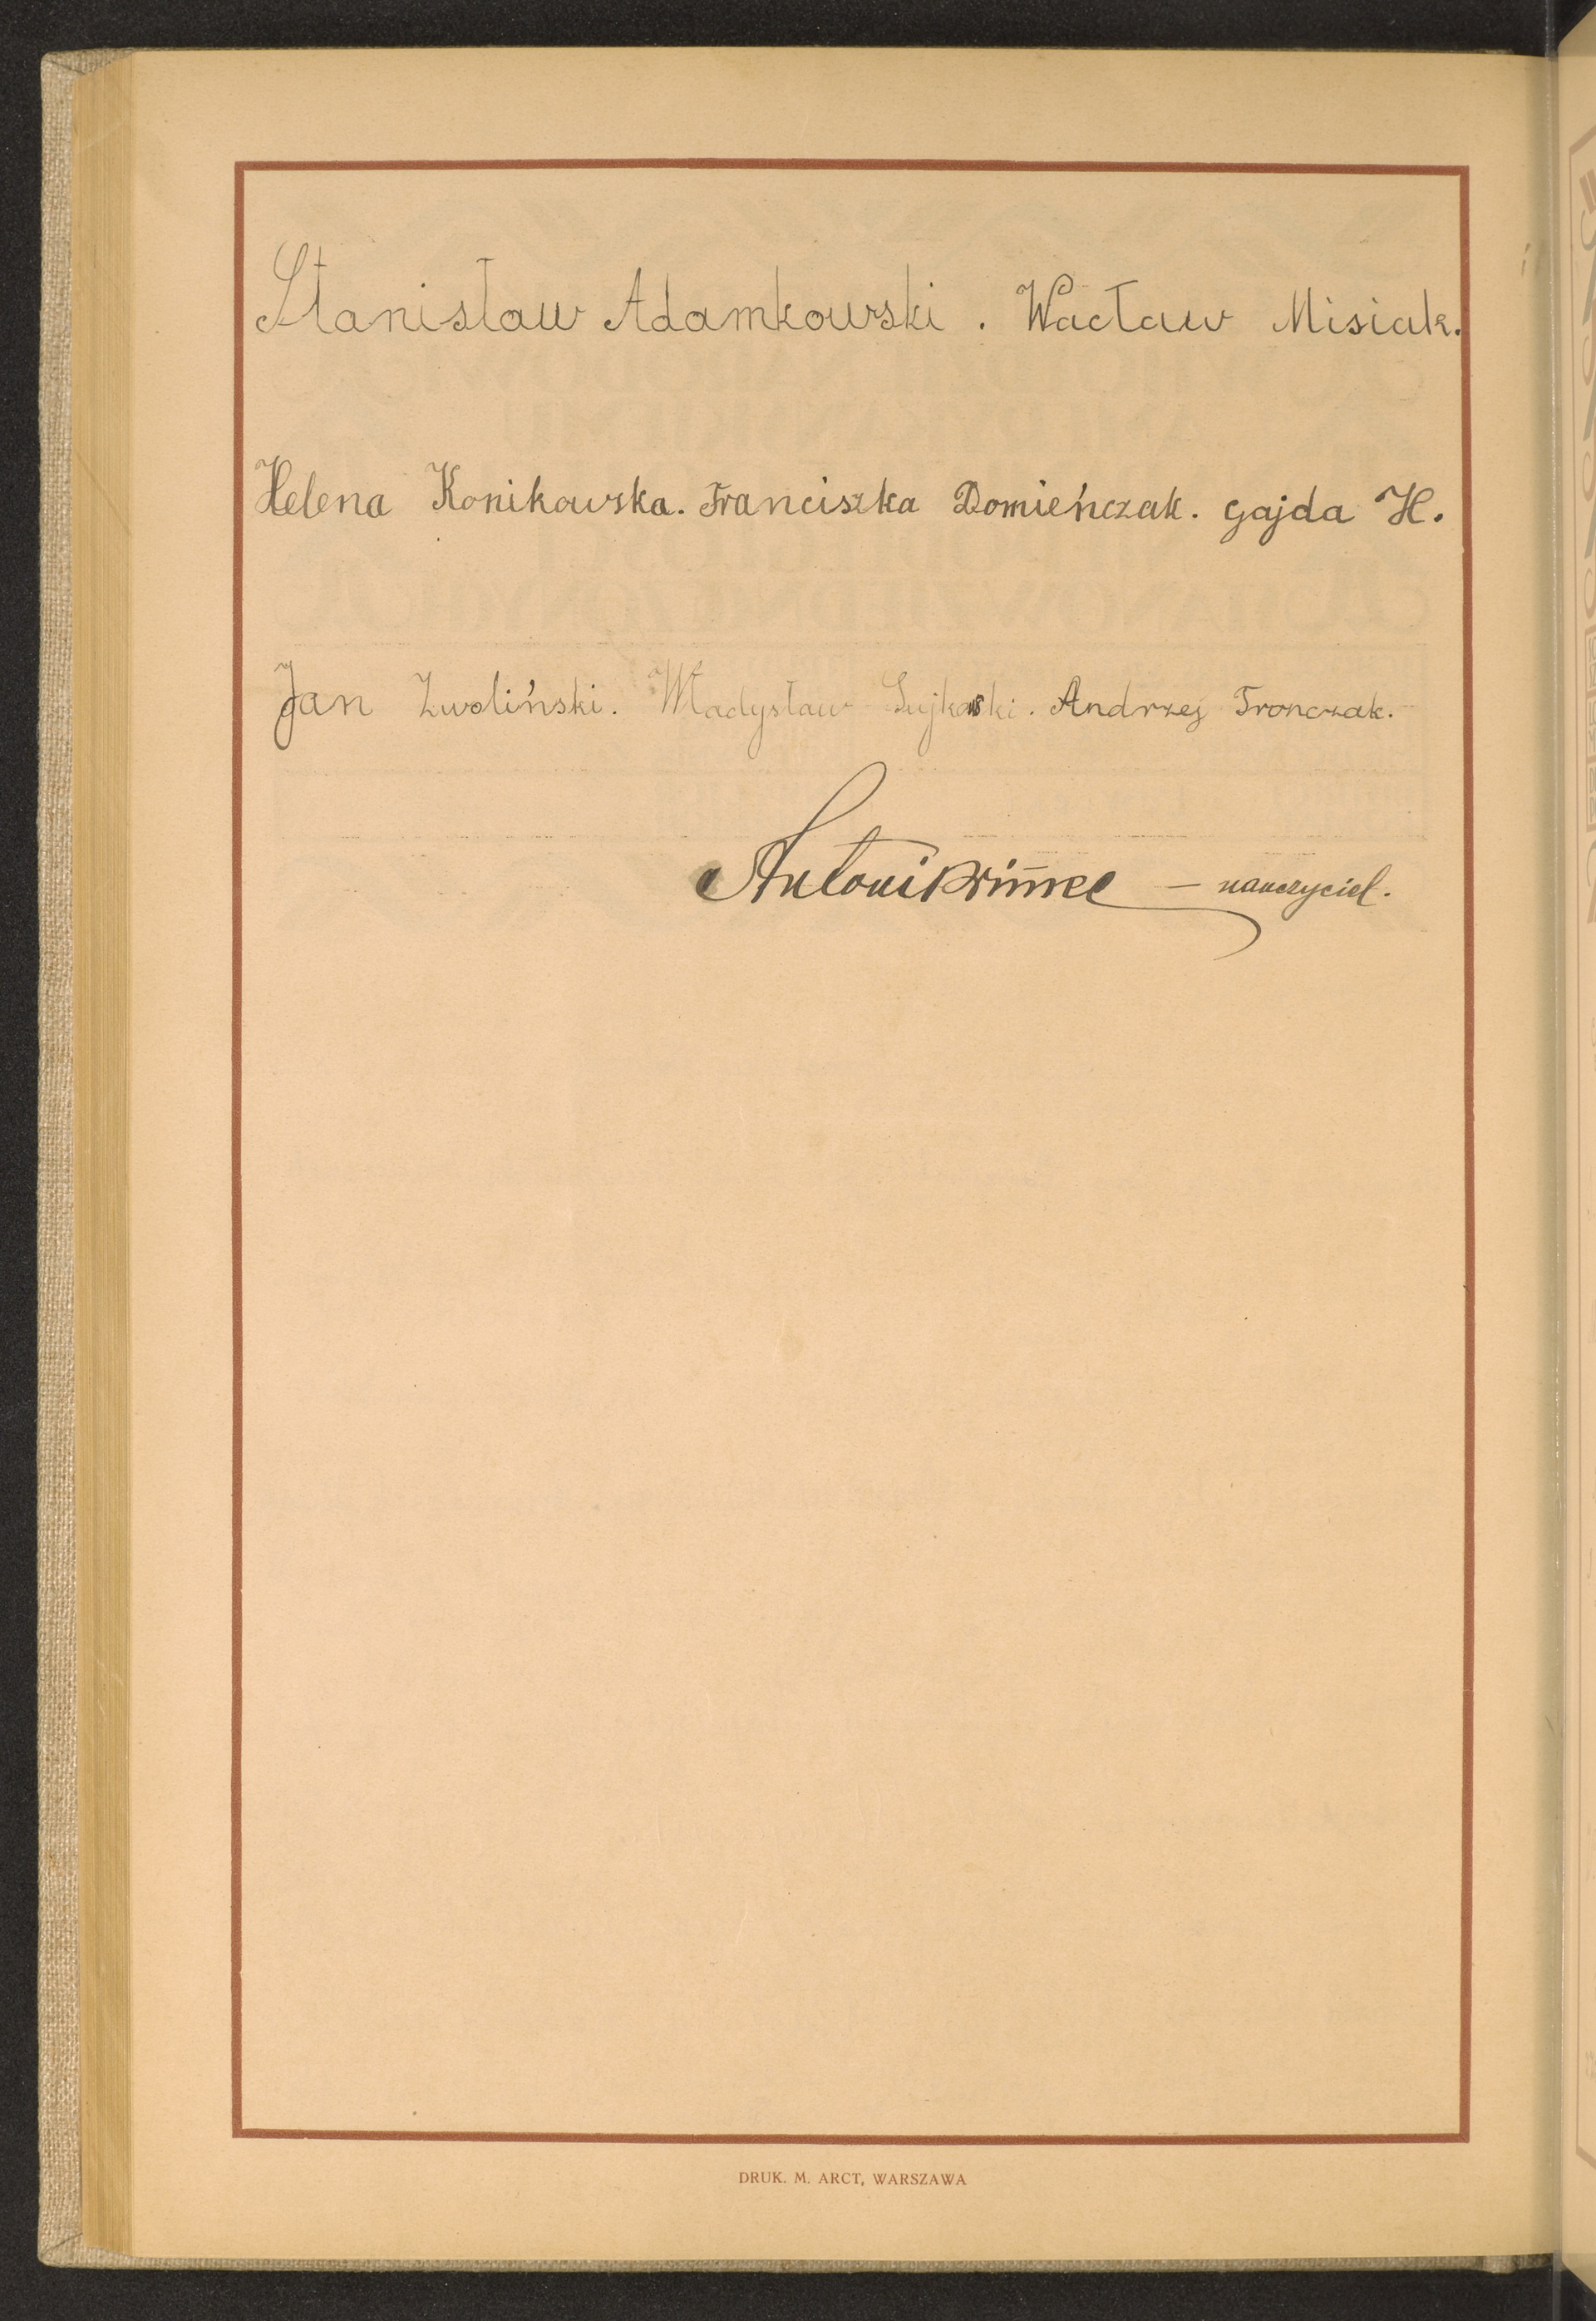 Stanisław Adamkowski. Wacław Misiak.
Helena Konikowska. Franciszka Domieńczak. Gajda H.
Jan Zwoliński. Władysław Andrzej Tronczak.
Antoni — nauczyciel.
DRUK. M. ARCT, WARSZAWA